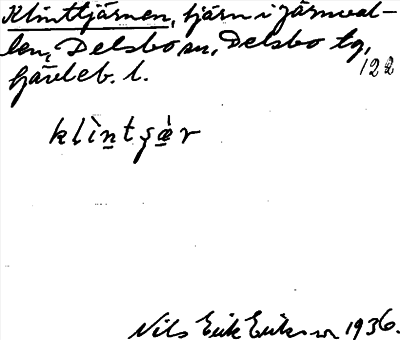 Klinttjärnen, tjärn i Järnval-
len, Delsbo sn, Delsbo tg,
Gävleb. l.
122
klìntʂæ̀r
Nils Erik Eriksson 1936.